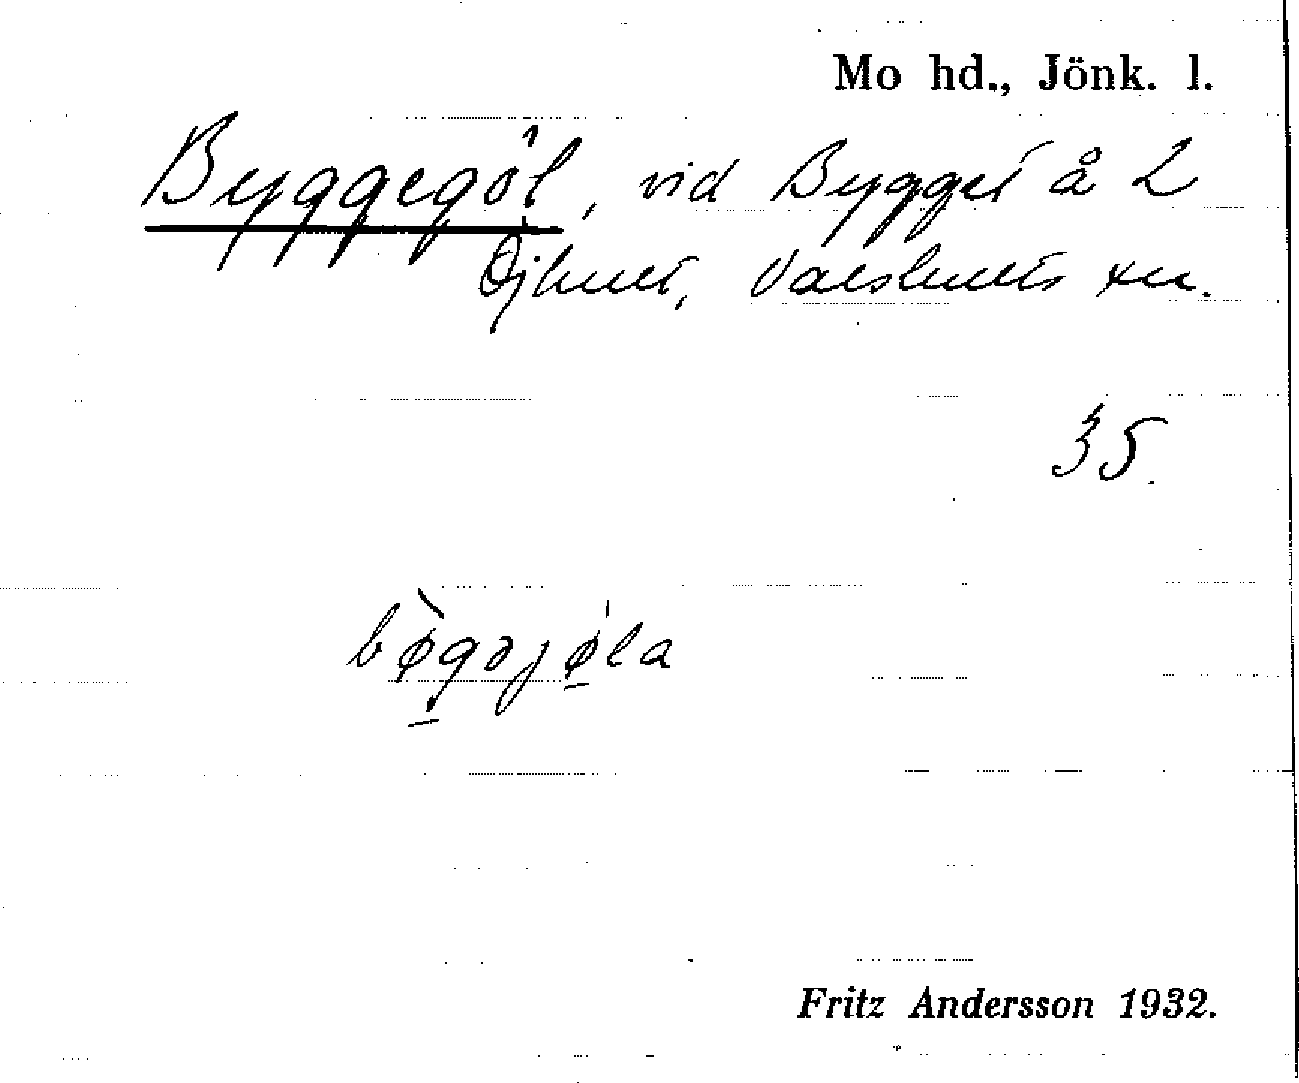 Mo hd., Jönk. l.
Byggegöl, vid Bygget å 2
Öjhult, Valshults sn.
35.
bø̀gəjø̍la
Fritz Andersson 1932.